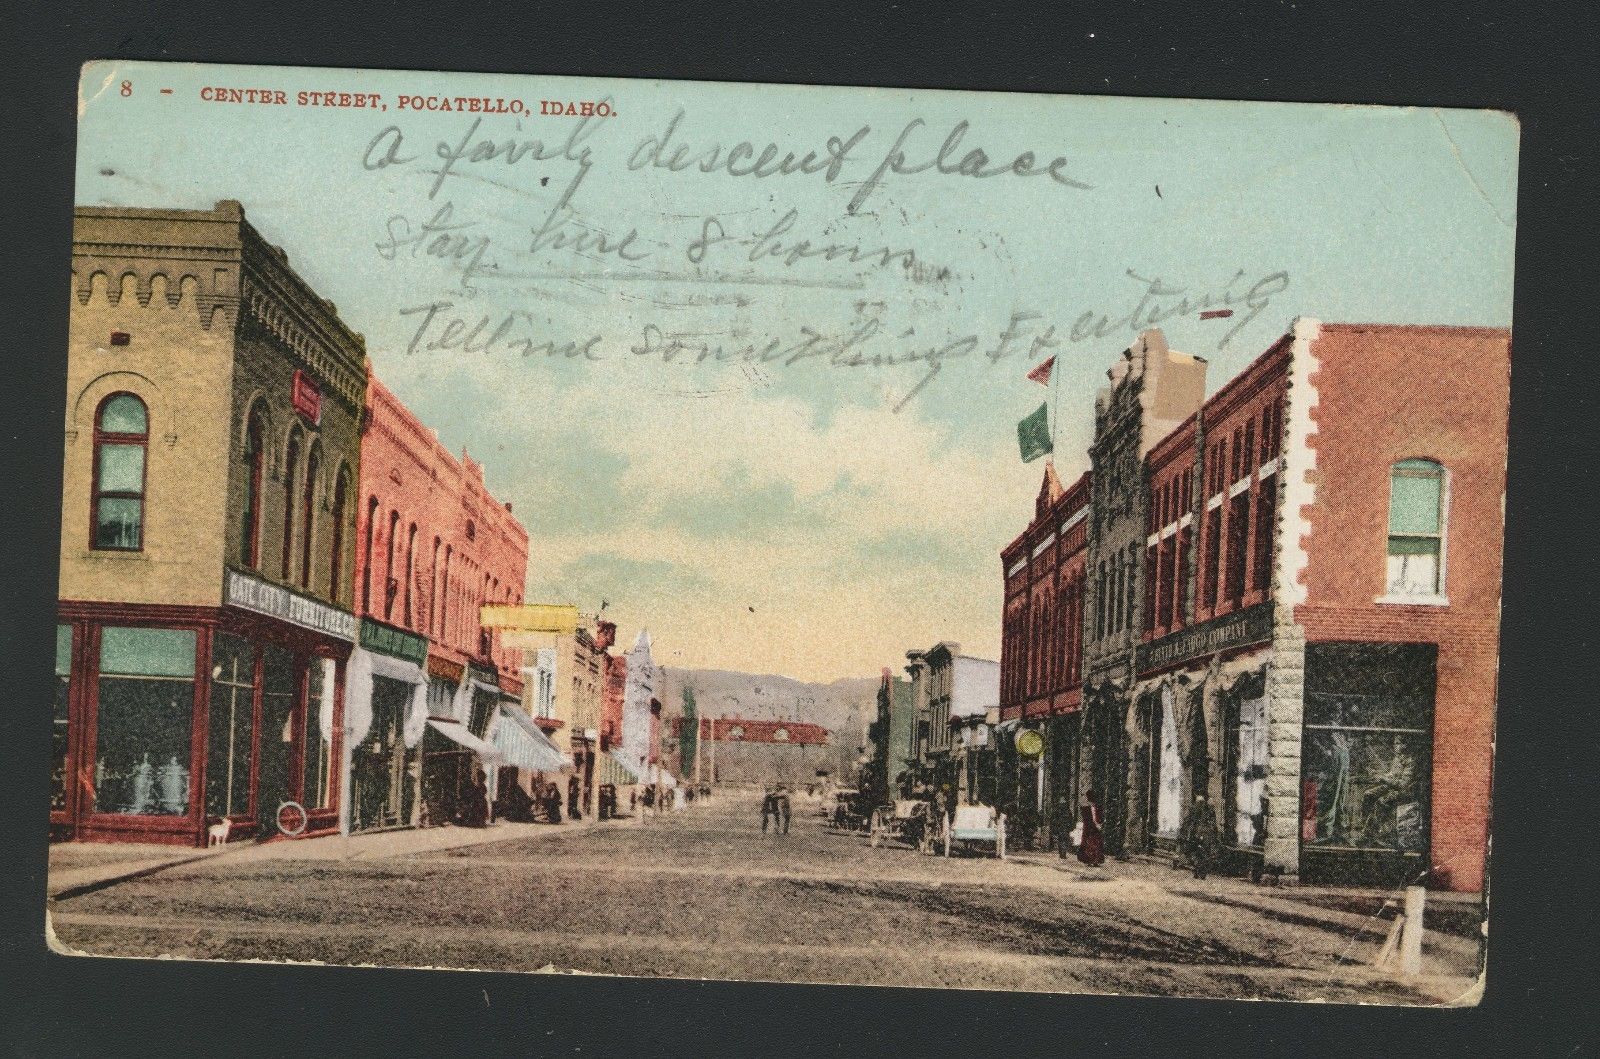 8 - CENTER STREET, POCATELLO, IDAHO.
a fairly descent place
stay here 8 hours
Tell me something Exciting
GATE CITY FURNITURE CO.
COMPANY